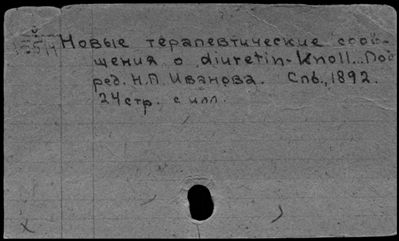 Новые терапевтические сооб-
щения о diuretin-Knoll... Под
ред. Н.П. Иванова. Спб., 1892.
24 стр. с илл.